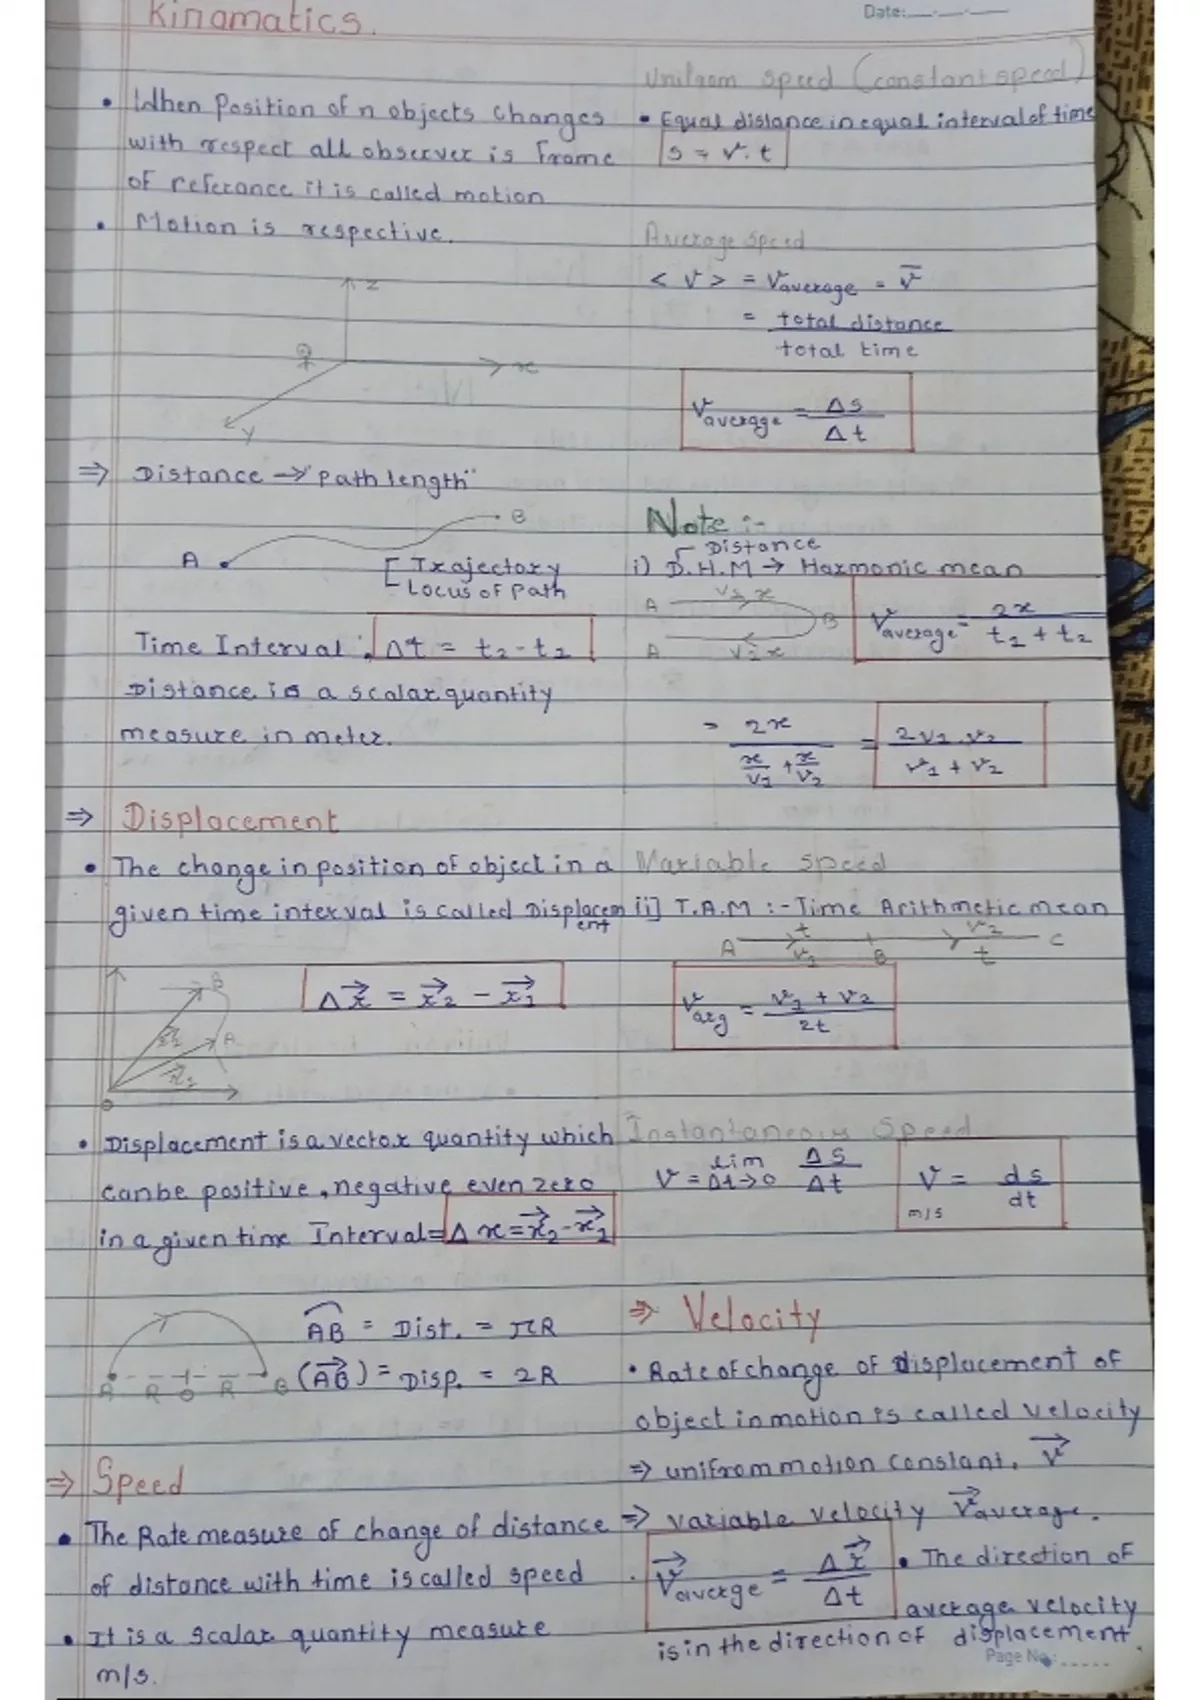 Kinamatics.
Date:
• When Position of n objects changes
with respect all observer is frame
of referance it is called motion
• Motion is respective.
z
x
y
⇒ Distance → "Path length"
A
B
[Trajectory
Locus of Path
Time Interval : Δt = t2 - t1
Distance is a scalar quantity
measure in meter.
⇒ Displacement
• The change in position of object in a
given time interval is called Displacem
ent
B
A
O
Δx⃗ = x⃗2 - x⃗1
• Displacement is a vector quantity which
can be positive, negative even zero
in a given time Interval = Δx = x⃗2 - x⃗1
AB = Dist. = πR
(AB⃗) = Disp. = 2R
A R O R B
⇒ Speed
• The Rate measure of change of distance
of distance with time is called speed
• It is a scalar quantity measure
m/s.
Uniform speed (constant speed)
• Equal distance in equal interval of time
s = v.t
Average Speed
< v > = v average = v̄
= total distance
total time
v average = Δs
Δt
Note :-
Distance
i) D.H.M → Harmonic mean
A v1 x B
A v2 x
v average = 2x
t1 + t2
= 2x
x/v1 + x/v2
= 2v1.v2
v1 + v2
Variable speed
ii] T.A.M :- Time Arithmetic mean
A t v1 B v2 t C
v avg = v1 + v2
2t
Instantaneous Speed
v = lim Δt→0 Δs
Δt
v = ds
dt
m/s
⇒ Velocity
• Rate of change of displacement of
object in motion is called velocity
⇒ unifrom motion constant. v⃗
⇒ variable velocity v⃗ average.
v⃗ averge = Δx⃗
Δt
• The direction of
average velocity
is in the direction of displacement.
Page No.: